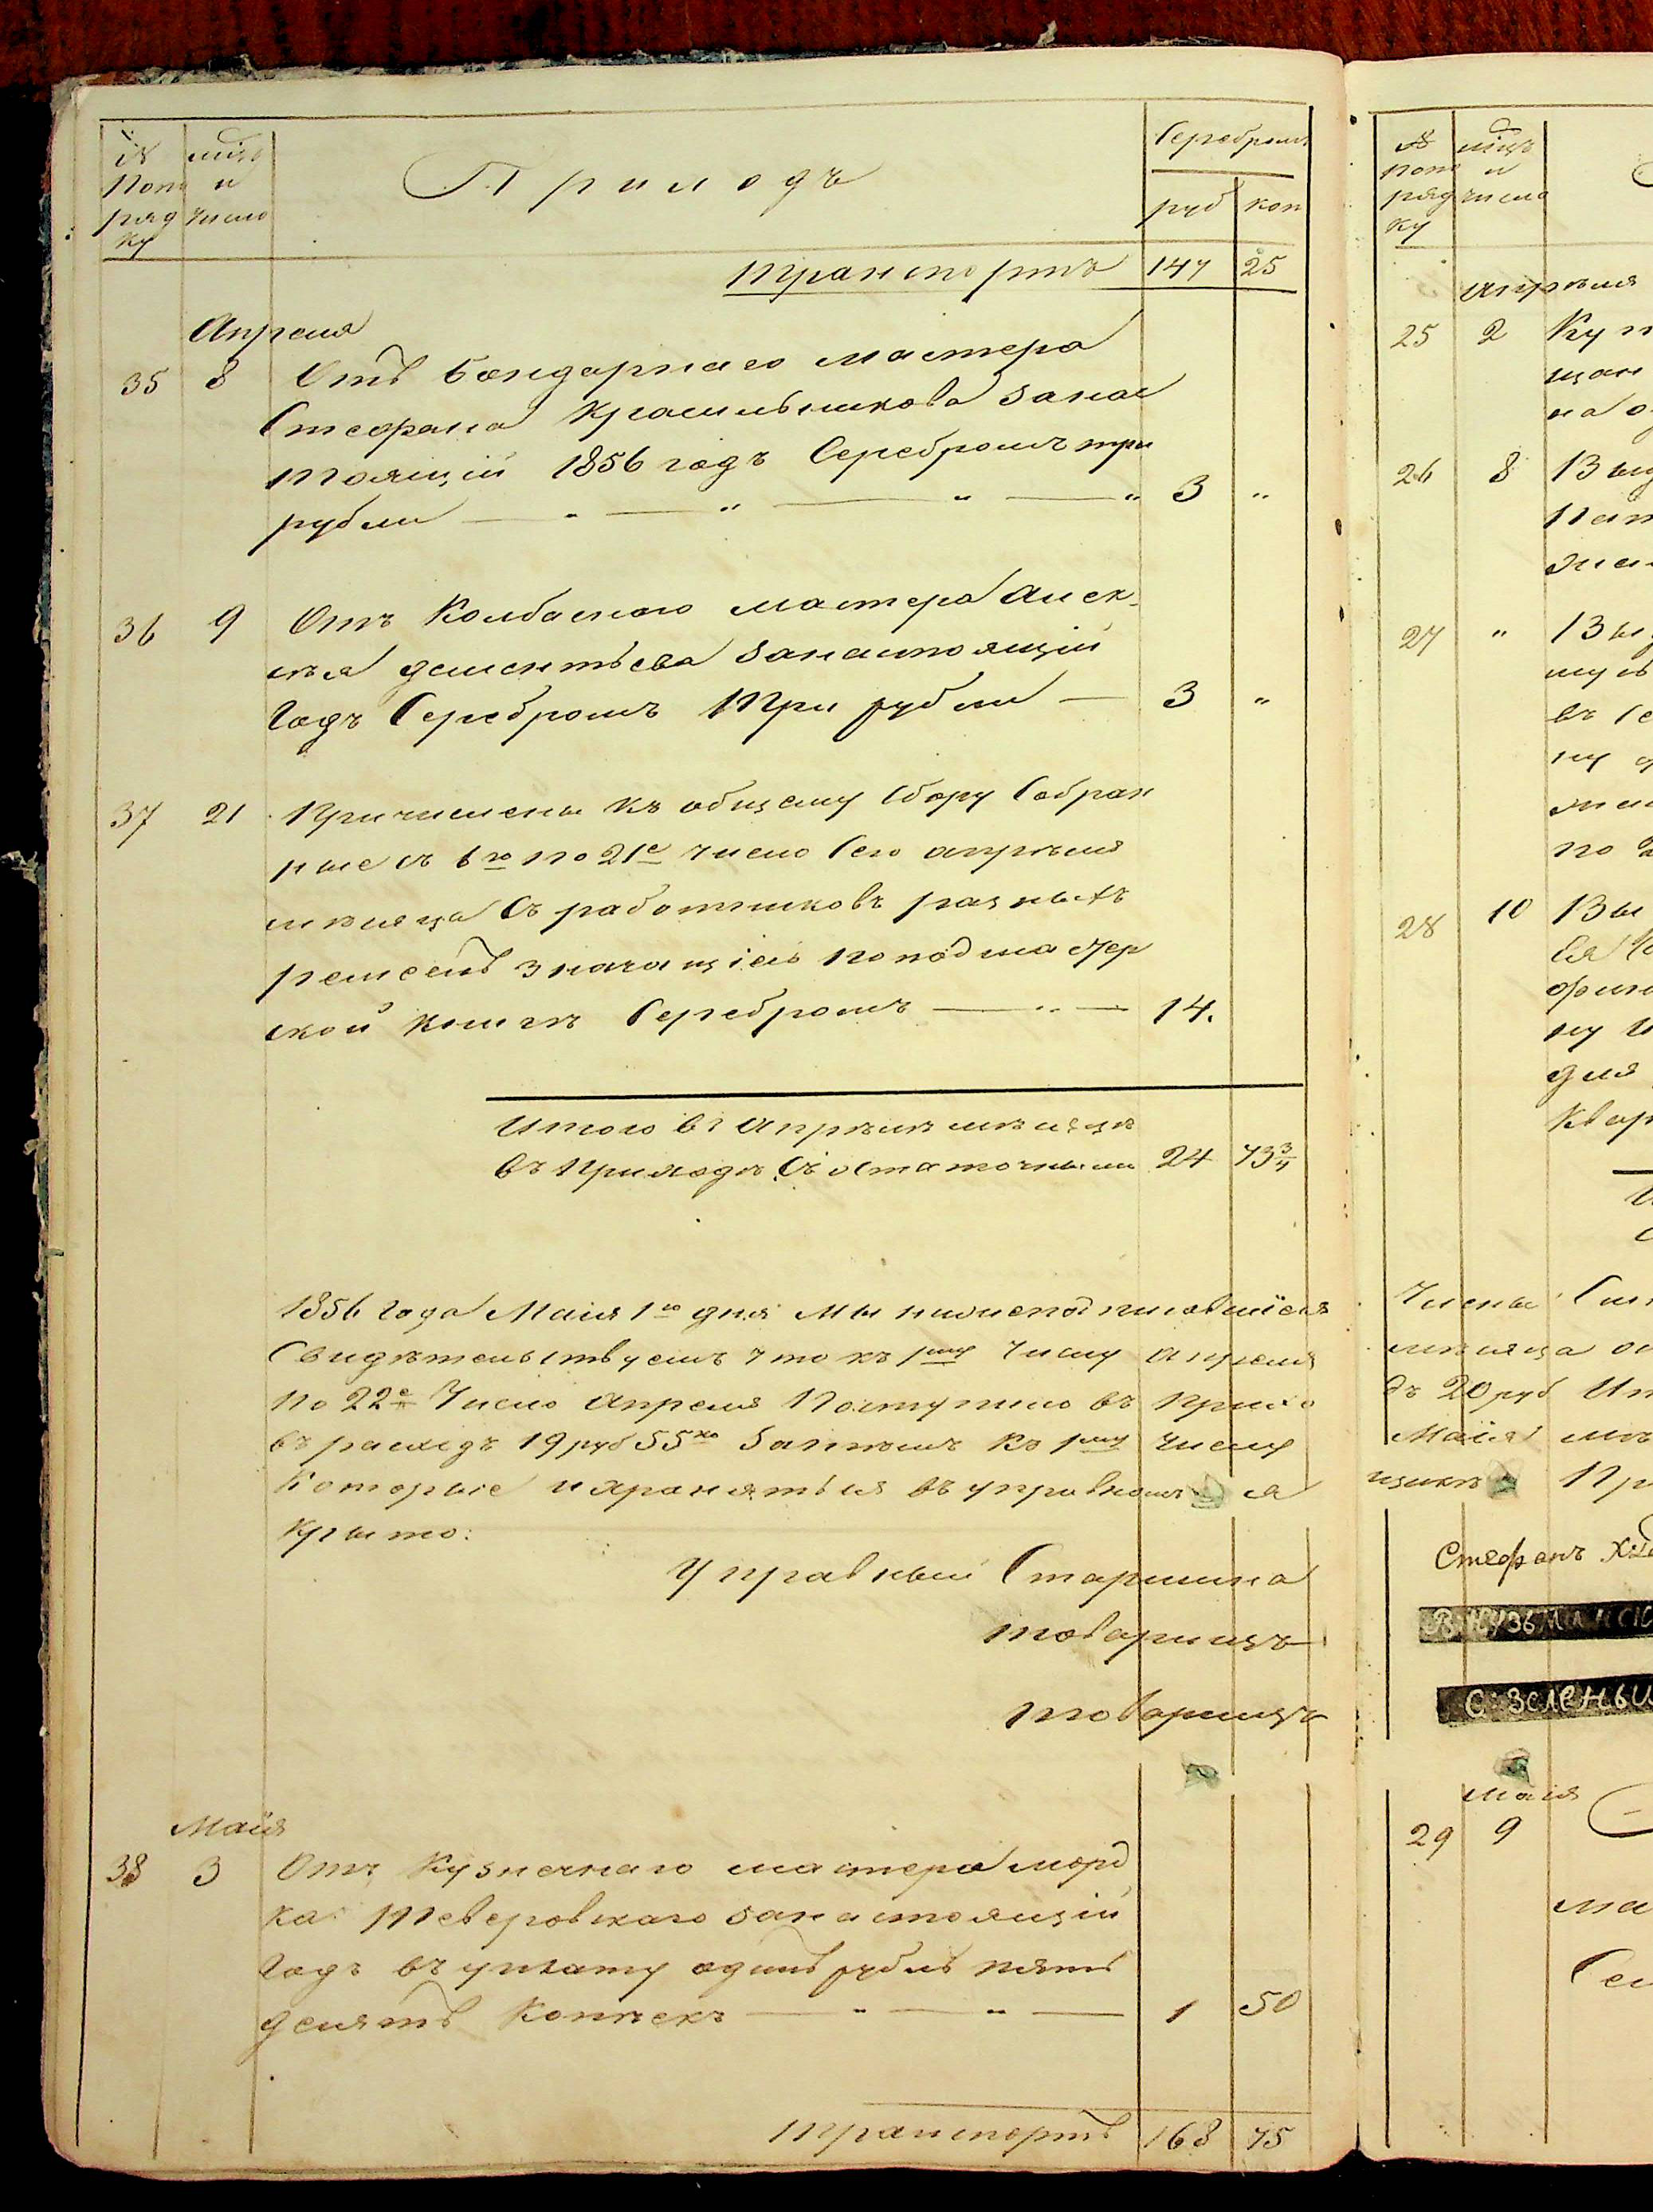 № по по ряд ку
мцъ и число
Приходъ
Серебромъ
руб коп
Транспортъ 147 25
Апреля
35 8 Отъ бондарнаго мастера
Стефана Красильникова за нас
тоящій 1856 годъ Серебромъ три
рубли 3 "
36 9 Отъ Колбаснаго мастера Алек
сѣя дементьева за настоящій
Годъ Серебромъ Три рубли 3 "
37 21 Причислены къ общему Сбору Собран
ные съ 6го по 21е число Сего апрѣля
мѣсяца Съ работниковъ разныхъ
ремеслъ значащіесь по подмастер
ской книгѣ Серебромъ 14.
Итого въ Апрѣлѣ мѣсяцѣ
въ Приходѣ Съ остаточными 24 73 3/4
1856 Года Маія 1го дня Мы нижеподписавшіеся
Свидѣтельствуемъ что къ 1му Числу Апреля
По 22е Число Апреля Поступило въ Прихо
въ расходъ 19 руб 55 ко Затѣмъ Къ 1му Числу
Которые и храняться въ управном
Крыто:
Управный Старшина
товарищъ
товарищъ
Маія
38 3 Отъ Кузнечнаго мастера морд
ка Теверовскаго за настоящій
Годъ въ уплату одинъ рубль пять
десятъ Копѣекъ 1 50
Транспортъ 168 75
№ по по ряд ку
мцъ и число
Апрѣля
25 2 Куп
щан
на о
26 8 Выд
Пат
27 " Вы
въ Се
ну
по
28 10 Вы
ну
для
Квар
Члены
мѣсяца
дъ 20 руб Ит
Маія мѣ
щикѣ Пр
Стефанъ
В. Кузьмински
С. Зелены
Маія
29 9
ма
Се